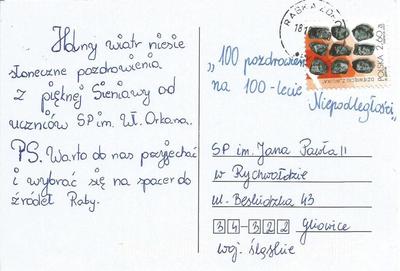 Halny wiatr niesie
słoneczne pozdrowienia
z pięknej Sieniawy od
uczniów SP im. Wł. Orkana.
PS. Warto do nas przyjechać
i wybrać się na spacer do
źródeł Raby.
RABKA ZDR
18.1
POLSKA 2,60 zł
"100 pozdrowień
na 100-lecie
Niepodległości"
SP im. Jana Pawła II
w Rychwałdzie
ul. Beskidzka 43
34-322 Gilowice
woj. śląskie